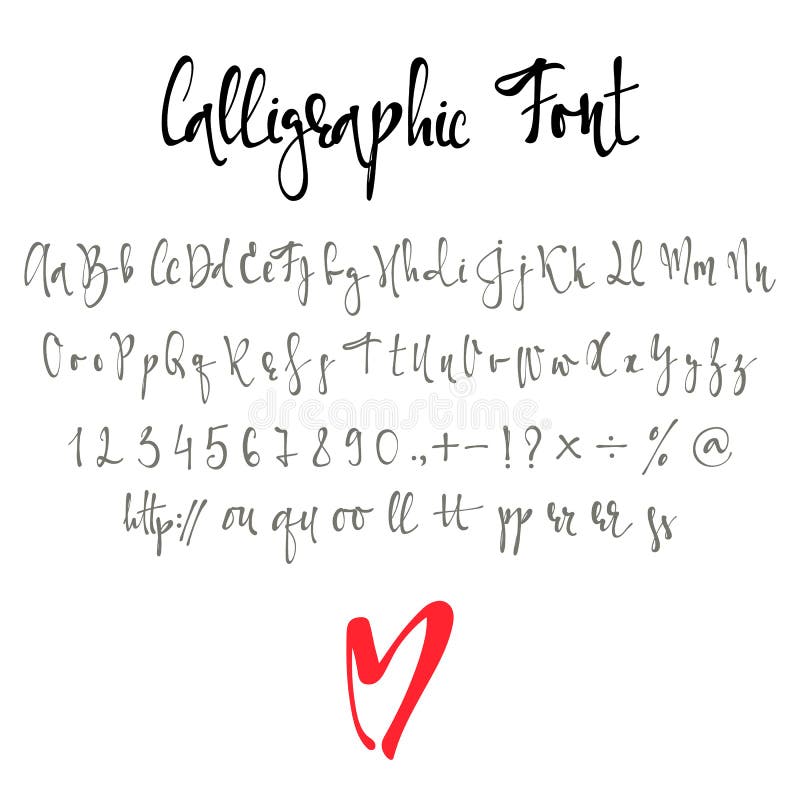 Calligraphic Font
Aa Bb Cc Dd Ee Ff Gg Hh di Jj Kk Ll Mm Nn
Oo o Pp Qq Rr Ss Tt Uu Vv Ww Xx Yy Zz
1 2 3 4 5 6 7 8 9 0 . , + - ! ? × ÷ % @
http:// ou qu oo ll tt pp er er ss
dreamstime